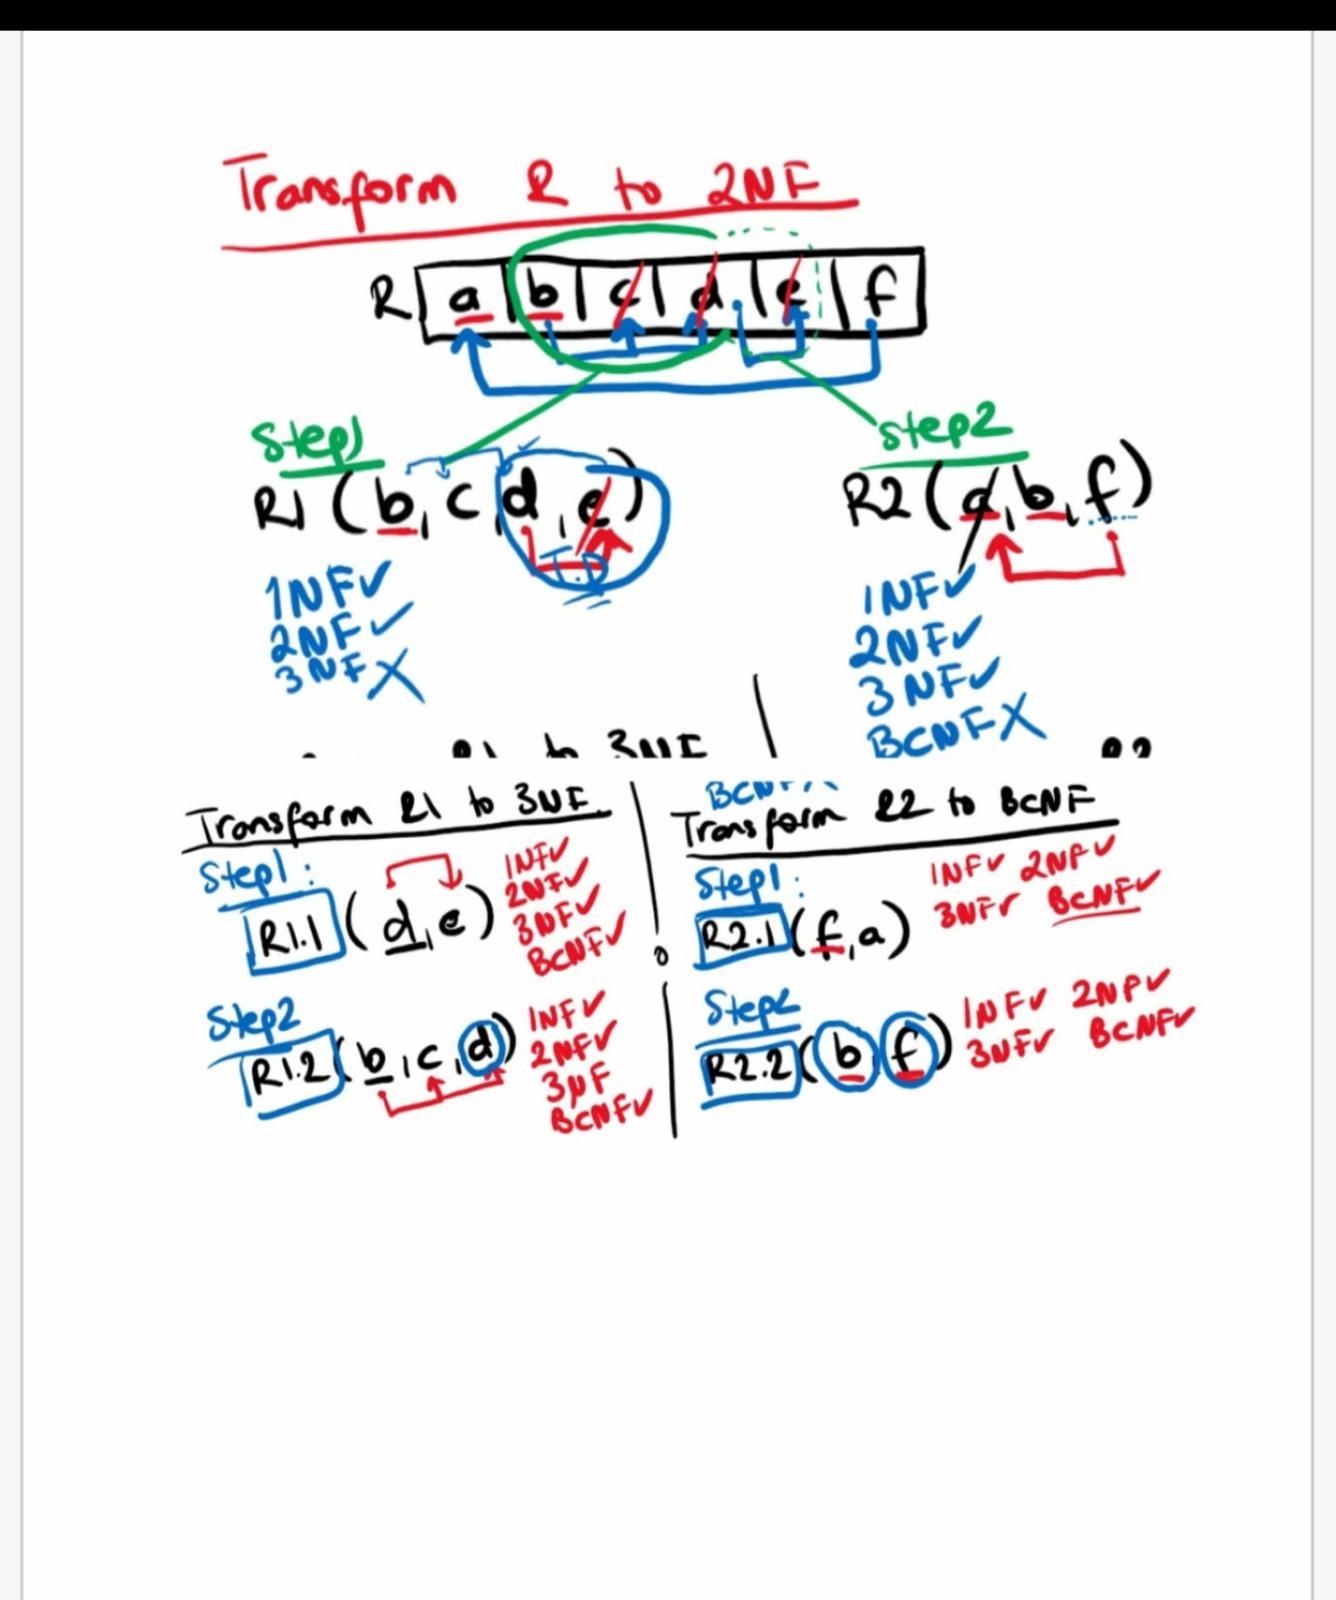 Transform R to 2NF
R a b c d e f
Step1
step2
R1 (b, c, d, e)
R2 (a, b, f)
T.D
1NF✓
2NF✓
3NF X
1NF✓
2NF✓
3NF✓
BCNF X
R1 to 3NF
R2
BCNF X
Transform R1 to 3NF
Transform R2 to BCNF
Step1:
R1.1 (d, e)
1NF✓
2NF✓
3NF✓
BCNF✓
Step2
R1.2 (b, c, d)
1NF✓
2NF✓
3NF
BCNF✓
Step1:
R2.1 (f, a)
1NF✓ 2NF✓
3NF✓ BCNF✓
Step2
R2.2 (b, f)
1NF✓ 2NF✓
3NF✓ BCNF✓